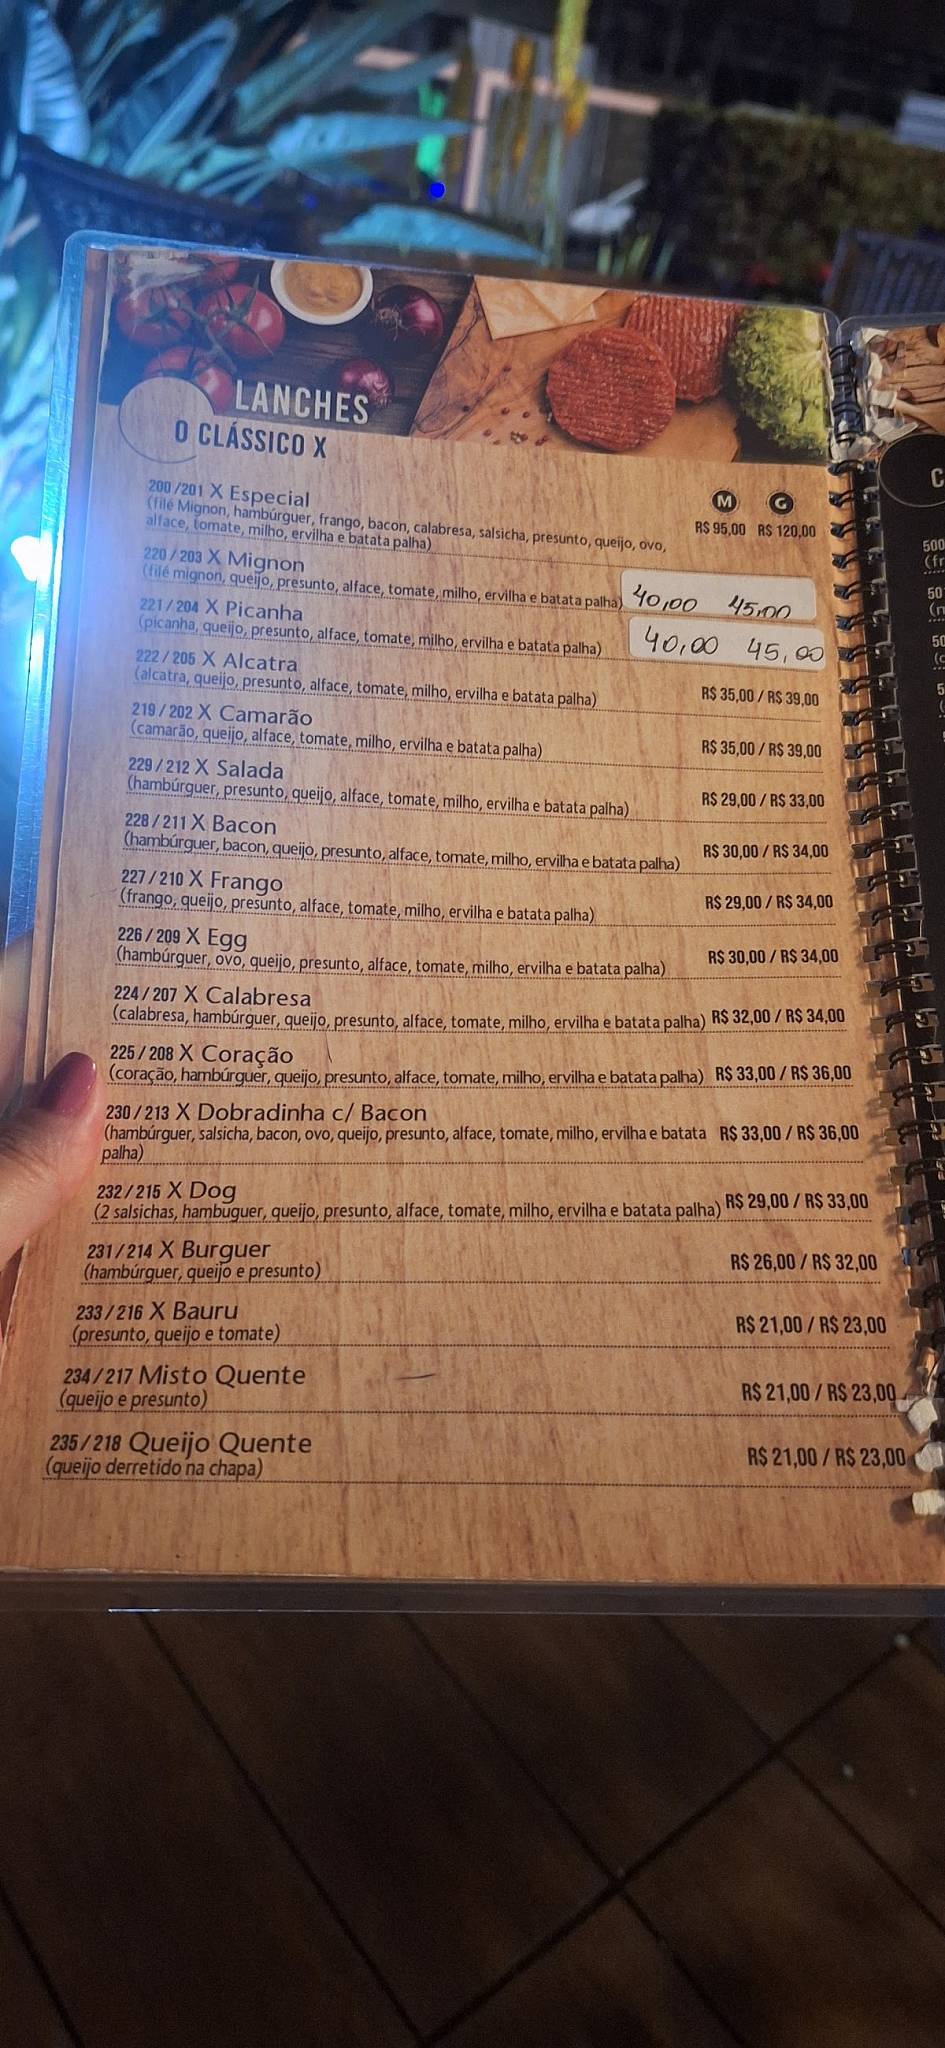 LANCHES
O CLÁSSICO X
M G
200/201 X Especial
(filé Mignon, hambúrguer, frango, bacon, calabresa, salsicha, presunto, queijo, ovo,
alface, tomate, milho, ervilha e batata palha)
R$ 95,00 R$ 120,00
220/203 X Mignon
(filé mignon, queijo, presunto, alface, tomate, milho, ervilha e batata palha)
40,00 45,00
221/204 X Picanha
(picanha, queijo, presunto, alface, tomate, milho, ervilha e batata palha)
40,00 45,00
222/205 X Alcatra
(alcatra, queijo, presunto, alface, tomate, milho, ervilha e batata palha)
R$ 35,00 / R$ 39,00
219/202 X Camarão
(camarão, queijo, alface, tomate, milho, ervilha e batata palha)
R$ 35,00 / R$ 39,00
229/212 X Salada
(hambúrguer, presunto, queijo, alface, tomate, milho, ervilha e batata palha)
R$ 29,00 / R$ 33,00
228/211 X Bacon
(hambúrguer, bacon, queijo, presunto, alface, tomate, milho, ervilha e batata palha)
R$ 30,00 / R$ 34,00
227/210 X Frango
(frango, queijo, presunto, alface, tomate, milho, ervilha e batata palha)
R$ 29,00 / R$ 34,00
226/209 X Egg
(hambúrguer, ovo, queijo, presunto, alface, tomate, milho, ervilha e batata palha)
R$ 30,00 / R$ 34,00
224/207 X Calabresa
(calabresa, hambúrguer, queijo, presunto, alface, tomate, milho, ervilha e batata palha) R$ 32,00 / R$ 34,00
225/208 X Coração
(coração, hambúrguer, queijo, presunto, alface, tomate, milho, ervilha e batata palha) R$ 33,00 / R$ 36,00
230/213 X Dobradinha c/ Bacon
(hambúrguer, salsicha, bacon, ovo, queijo, presunto, alface, tomate, milho, ervilha e batata R$ 33,00 / R$ 36,00
palha)
232/215 X Dog
(2 salsichas, hambuguer, queijo, presunto, alface, tomate, milho, ervilha e batata palha) R$ 29,00 / R$ 33,00
231/214 X Burguer
(hambúrguer, queijo e presunto)
R$ 26,00 / R$ 32,00
233/216 X Bauru
(presunto, queijo e tomate)
R$ 21,00 / R$ 23,00
234/217 Misto Quente
(queijo e presunto)
R$ 21,00 / R$ 23,00
235/218 Queijo Quente
(queijo derretido na chapa)
R$ 21,00 / R$ 23,00